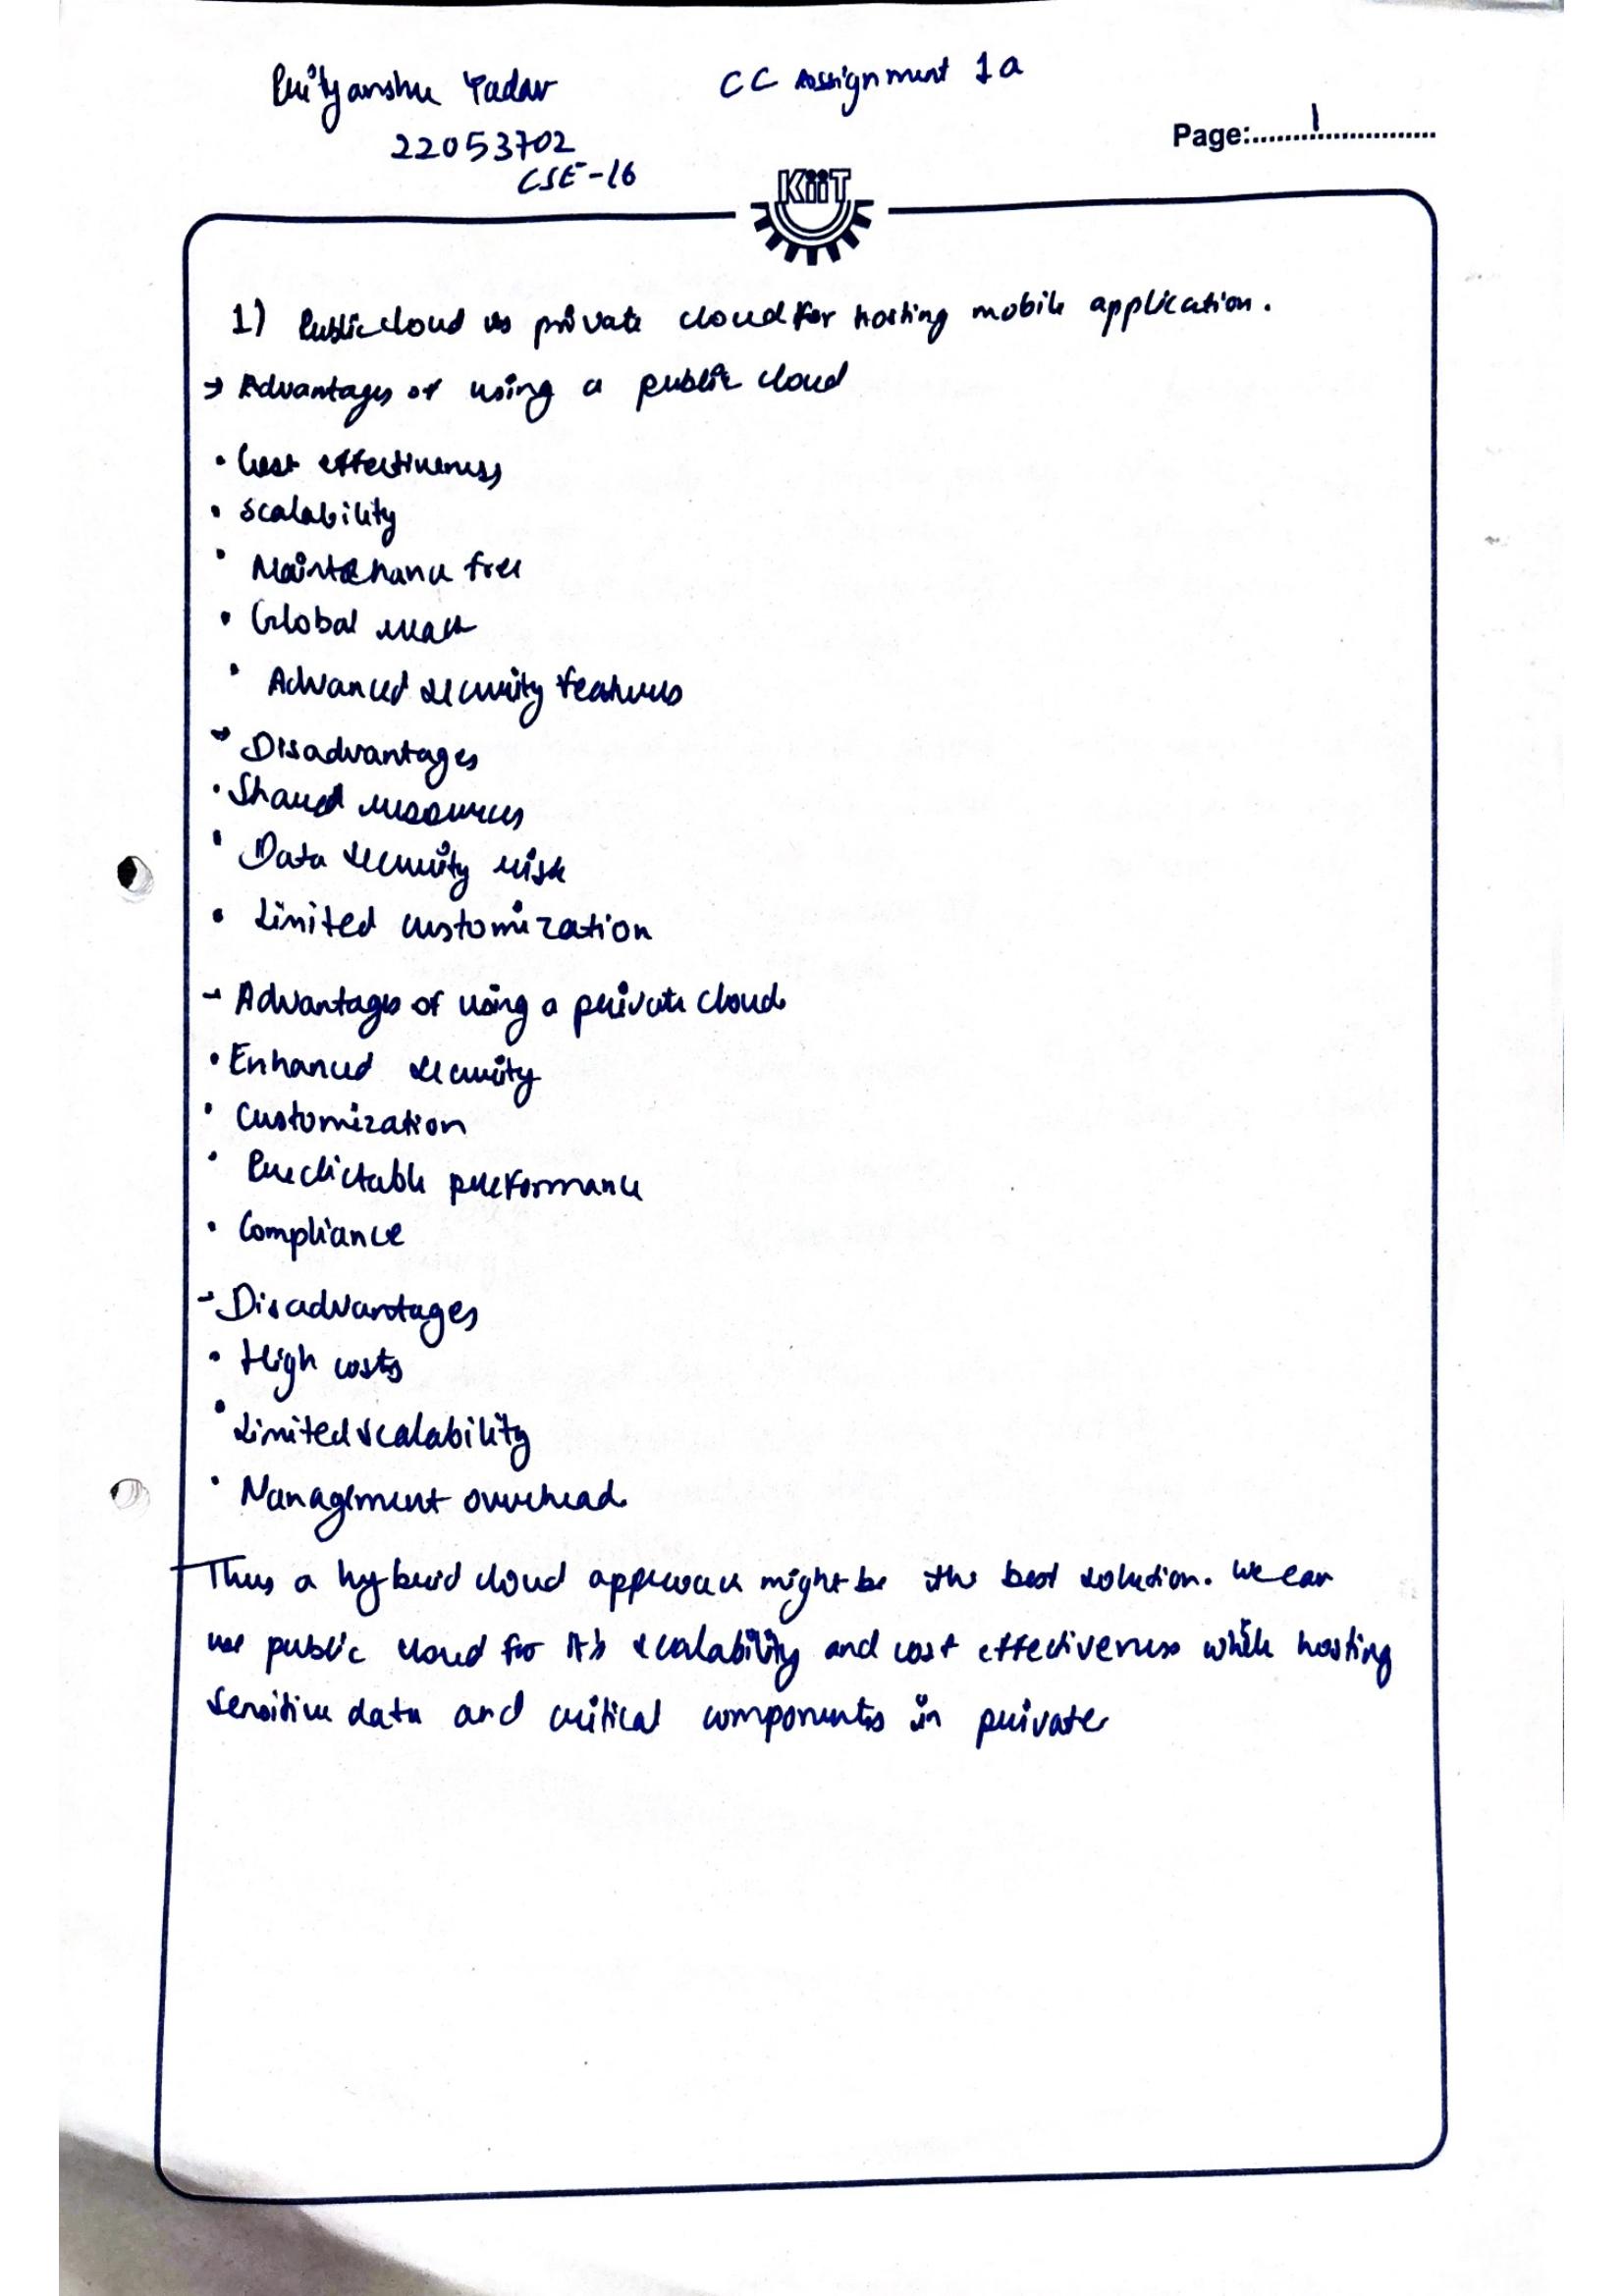 Prityanshu Yadav
CC Assignment 1a
22053702
CSE-16
Page: 1
KiiT
1) Public cloud vs private cloud for hosting mobile application.
→ Advantages of using a public cloud
• Cost effectiveness
• Scalability
• Maintenance free
• Global reach
• Advanced security features
→ Disadvantages
• Shared resources
• Data security risk
• Limited customization
→ Advantages of using a private cloud
• Enhanced security
• Customization
• Predictable performance
• Compliance
→ Disadvantages
• High costs
• Limited scalability
• Management overhead
Thus a hybrid cloud approach might be the best solution. We can
use public cloud for it's scalability and cost effectiveness while hosting
sensitive data and critical components in private